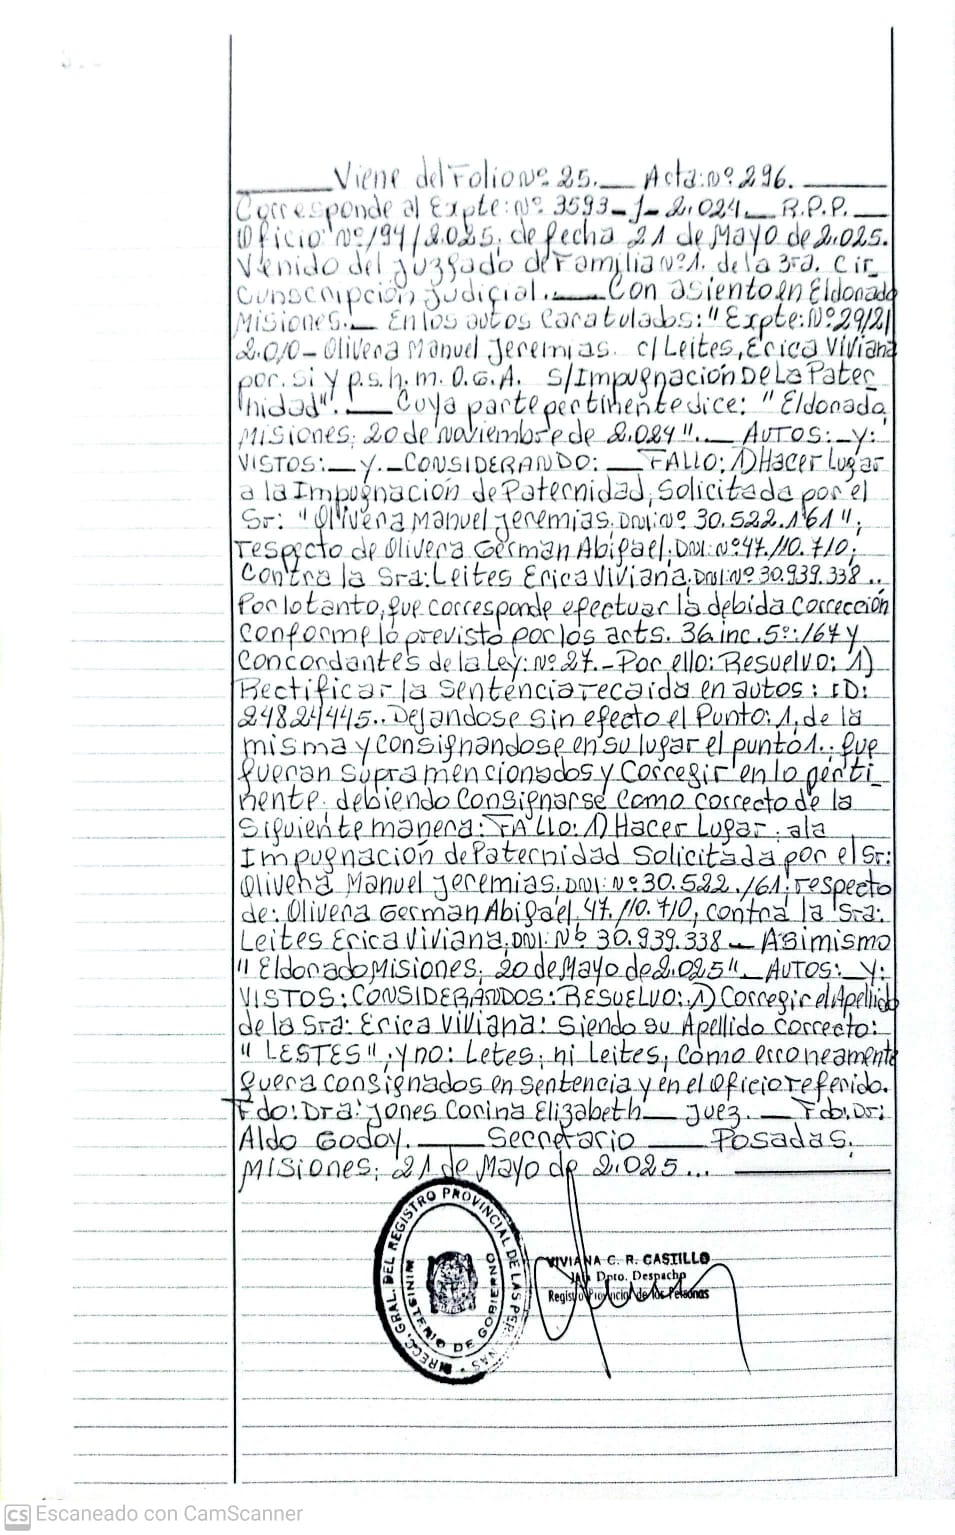 Viene del Folio Nº 25. Acta: Nº 296.
Corresponde al Expte: Nº 3593-J-2.024. R.P.P.
Oficio Nº 194/2.025, de fecha 21 de Mayo de 2.025.
Venido del Juzgado de Familia Nº 1. de la 3ra. Cir_
cunscripción Judicial. Con asiento en Eldorado
Misiones. En los autos Caratulados: "Expte: Nº 29/21
2.010 - Olivera Manuel Jeremias. c/ Leites, Erica Viviana
por. si y p.s.h.m. O.G.A. s/ Impugnación De La Pater_
nidad". Cuya parte pertinente dice: "Eldorado,
Misiones; 20 de Noviembre de 2.024". AUTOS: Y:
VISTOS: Y. CONSIDERANDO: FALLO: 1) Hacer Lugar
a la Impugnación de Paternidad, Solicitada por el
Sr: "Olivera Manuel Jeremias. DNI: Nº 30.522.161";
respecto de Olivera Germán Abigael; DNI: Nº 47.110.710;
Contra la Sra: Leites Erica Viviana. DNI: Nº 30.939.338..
Por lo tanto, que corresponde efectuar la debida corrección
conforme lo previsto por los arts. 36 inc. 5º: 167 y
Concordantes de la Ley: Nº 27.- Por ello: Resuelvo: 1)
Rectificar la Sentencia recaida en autos: ID:
24824445.. Dejandose sin efecto el Punto: 1, de la
misma y consignandose en su lugar el punto 1.. que
fueran supra mencionados y Corregir en lo perti_
nente. debiendo Consignarse Como correcto de la
Siguiente manera: FALLO: 1) Hacer Lugar. a la
Impugnación de Paternidad Solicitada por el Sr:
Olivera Manuel Jeremias. DNI: Nº 30.522.161; respecto
de: Olivera Germán Abigael. 47.110.710, contra la Sra:
Leites Erica Viviana. DNI: Nº 30.939.338 - Asimismo
"Eldorado Misiones; 20 de Mayo de 2.025". AUTOS: Y:
VISTOS: CONSIDERANDOS: RESUELVO: 1) Corregir el Apellido
de la Sra: Erica Viviana: Siendo su Apellido correcto:
"LESTES"; y no: Letes; ni Leites; como erroneamente
fuera consignados en sentencia y en el oficio referido.
Fdo: Dra: Jones Corina Elizabeth Juez. Fdo: Dr:
Aldo Godoy. Secretario Posadas,
Misiones; 21 de Mayo de 2.025...
DIRECC. GRAL. DEL REGISTRO PROVINCIAL DE LAS PERSONAS
MINISTERIO DE GOBIERNO
VIVIANA C. R. CASTILLO
Dpto. Despacho
Registro Provincial de las Personas
CS Escaneado con CamScanner